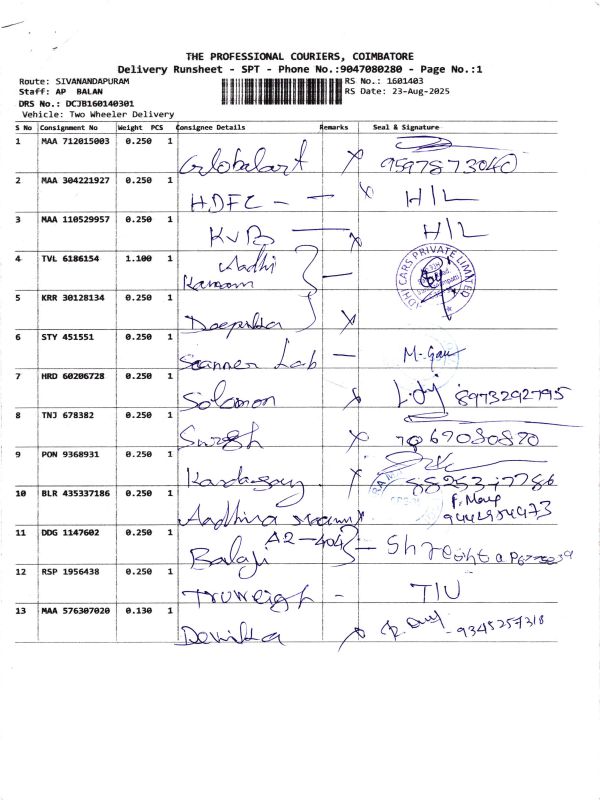 THE PROFESSIONAL COURIERS, COIMBATORE
Delivery Runsheet - SPT - Phone No.:9047080280 - Page No.:1
Route: SIVANANDAPURAM RS No.: 1601403
Staff: AP BALAN RS Date: 23-Aug-2025
DRS No.: DCJB160140301
Vehicle: Two Wheeler Delivery
S No Consignment No Weight PCS Consignee Details Remarks Seal & Signature
1 MAA 712015003 0.250 1 Globalart 9597873040
2 MAA 304221927 0.250 1 HDFC - - H/L
3 MAA 110529957 0.250 1 KVB H/L
4 TVL 6186154 1.100 1 Aadhi
5 KRR 30128134 0.250 1 Deepika
6 STY 451551 0.250 1 Scanner Lab - M. Gau
7 HRD 60206728 0.250 1 Solomon 8973292795
8 TNJ 678382 0.250 1 Suresh
9 PON 9368931 0.250 1
10 BLR 435337186 0.250 1 Aadhira
11 DDG 1147602 0.250 1 Balaji A2-404
12 RSP 1956438 0.250 1 Truweigh - TIU
13 MAA 576307020 0.130 1 Devika - 9345257318